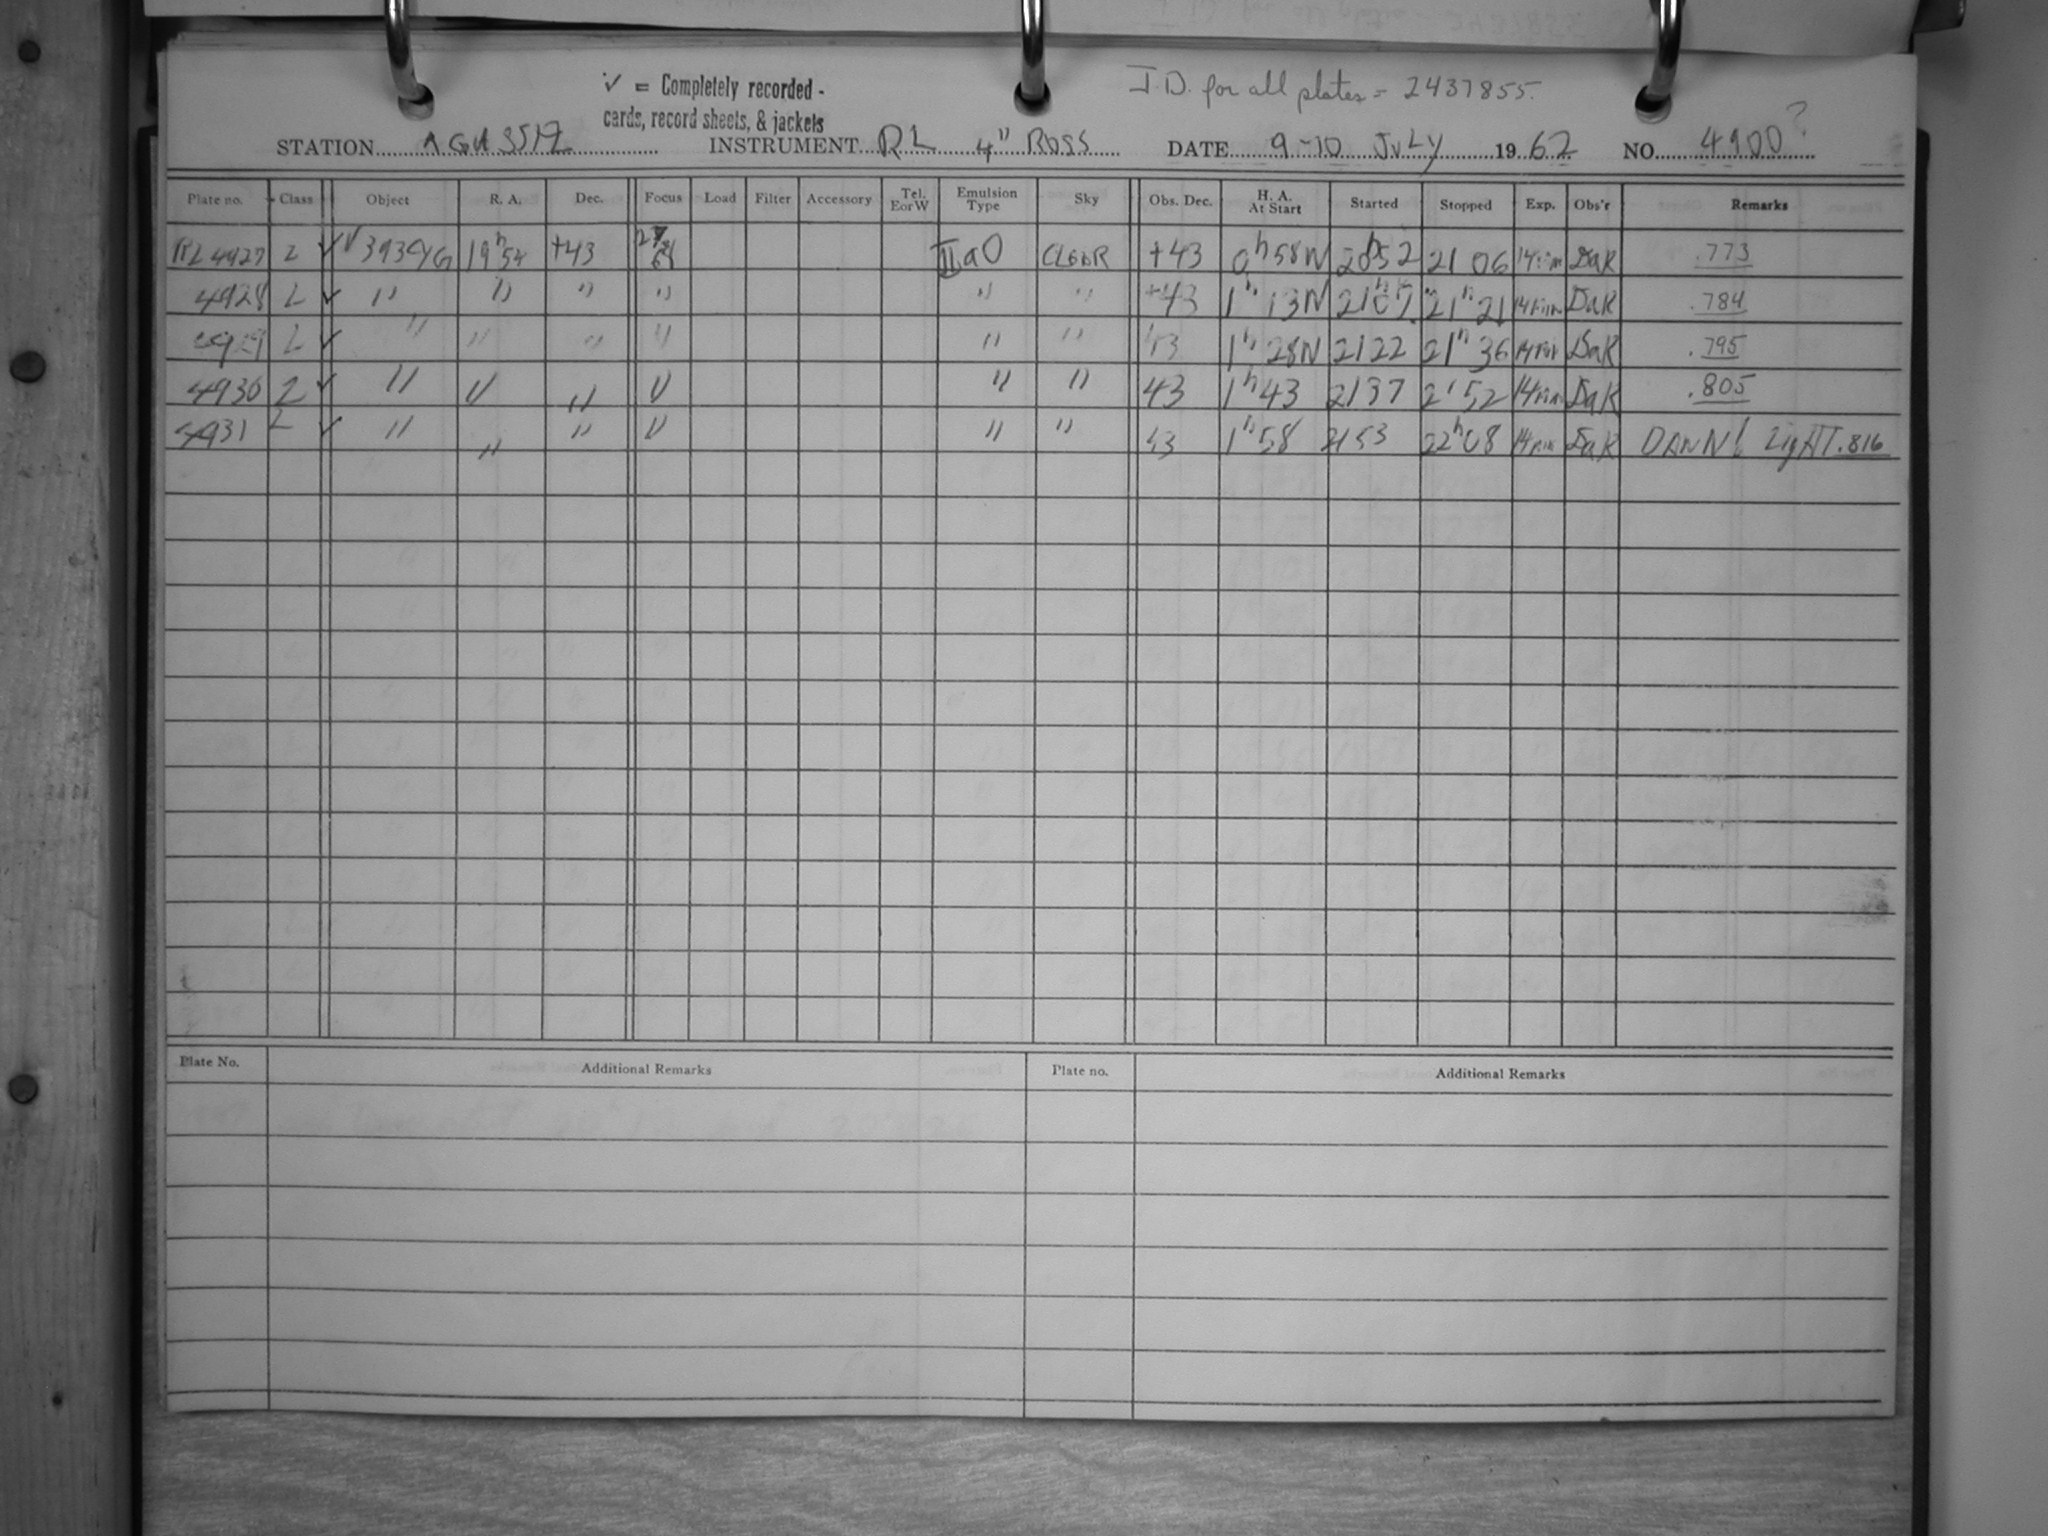 J.D. for all plates = 2437855.
✓ = Completely recorded -
cards, record sheets, & jackets
STATION INSTRUMENT RL 4" ROSS DATE 9-10 JULY 1962 NO. 4900?
Plate no. Class Object R. A. Dec. Focus Load Filter Accessory Tel. E or W Emulsion Type Sky Obs. Dec. H. A. At Start Started Stopped Exp. Obs'r Remarks
RL 4927 L ✓ V393CYG 19h54 +43 IIaO CLEAR +43 0h58W 2052 21 06 14min DaK .773
4928 L ✓ " " " " " " +43 1h 13W 21h07 21h21 14min DaK .784
4929 L ✓ " " " " " " 43 1h 28W 2122 21h 36 14min DaK .795
4930 L ✓ " " " " " " 43 1h43 2137 2152 14min DaK .805
4931 L ✓ " " " " " " 43 1h58 2153 22h08 14min DaK LigHT .816
Plate No. Additional Remarks Plate no. Additional Remarks